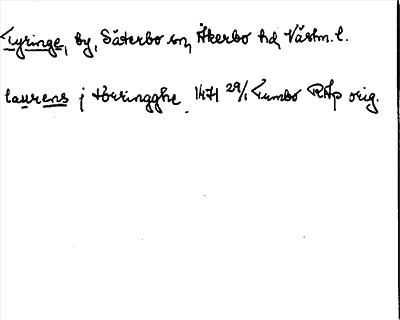 Tyringe, by, Säterbo sn, Åkerbo hd, Västm. l.
laurens j törringghe 1471 29/1 Tumbo RAp orig.